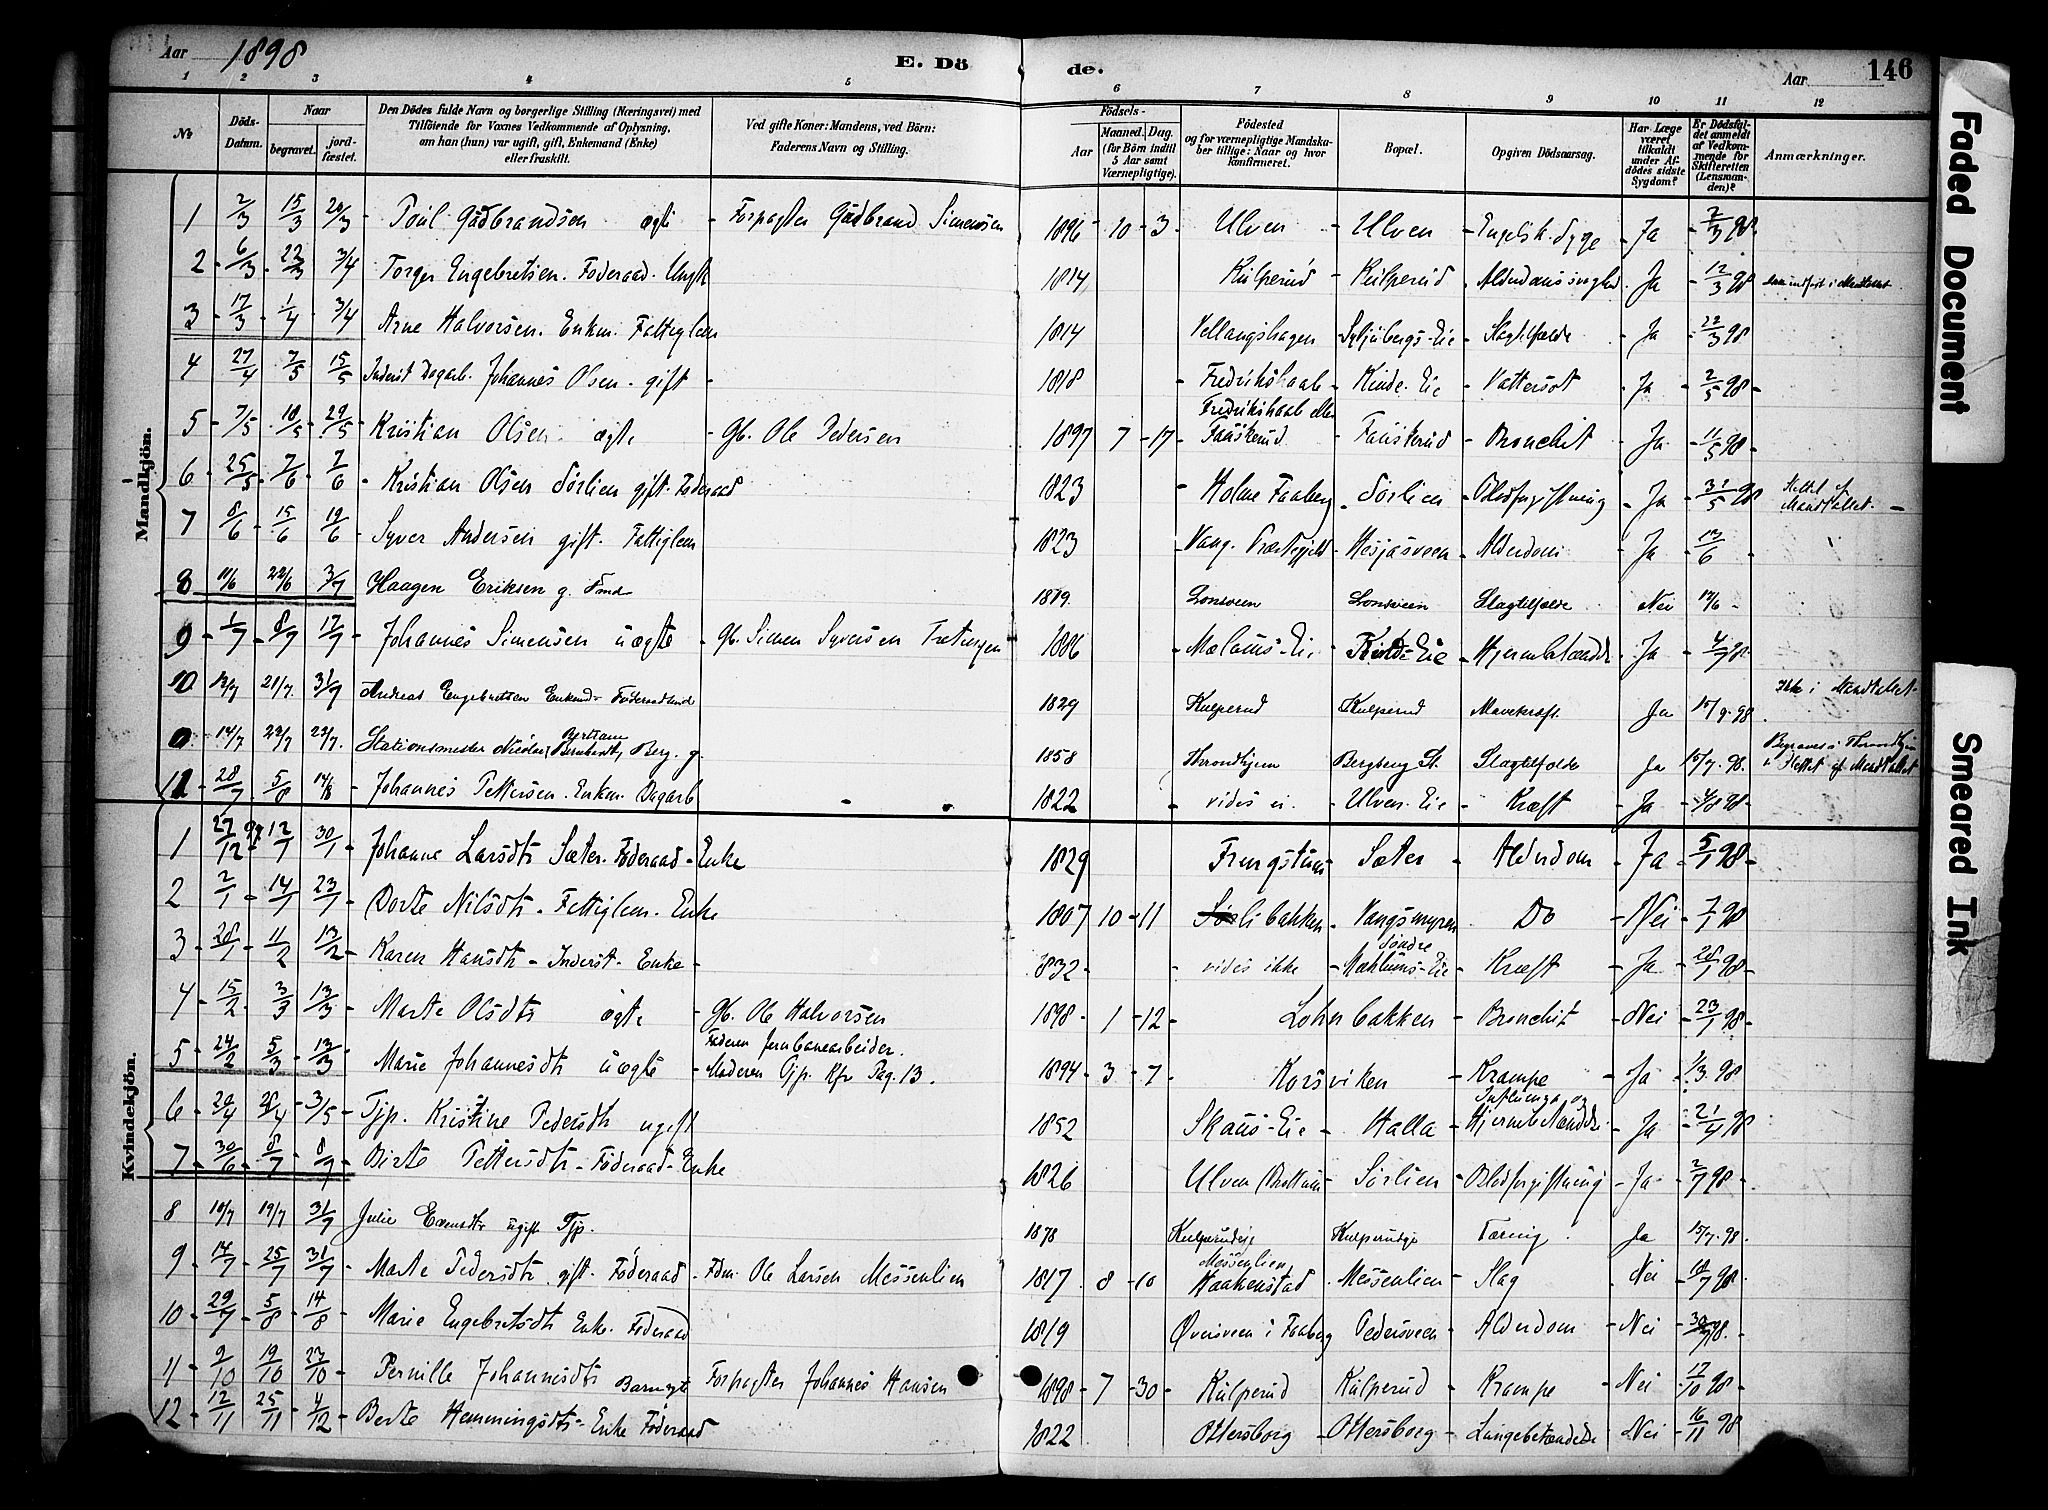 Aar 1898
E. Dö
de.
Aar
146
1 2 3 4 5 6 7 8 9 10 11 12
№
Döds-Datum.
Naar
begravet.
jord-fæstet.
Den Dödes fulde Navn og borgerlige Stilling (Næringsvei) med
Tilföiende for Voxnes Vedkommende af Oplysning,
om han (hun) var ugift, gift, Enkemand (Enke)
eller fraskilt.
Ved gifte Koner: Mandens, ved Börn:
Faderens Navn og Stilling.
Födsels-
Aar
Maaned. Dag.
(for Börn indtil
5 Aar samt
Værnepligtige).
Födested
og for værnepligtige Mandska-
ber tillige: Naar og hvor
konfirmeret.
Bopæl.
Opgiven Dödsaarsag.
Har Læge
været
tilkaldt
under Af-
dödes sidste
Sygdom?
Er Dödsfal-
det anmeldt
af Vedkom-
mende for
Skifteretten
(Lensman-
den)?
Anmærkninger.
Mandkjön.
1 2/3 15/3 20/3 Poul Gudbrandsen ægte Forpagter Gudbrand Simensen 1896 10 3 Ulven Ulven Engelsk Syge Ja 2/3 98
2 6/3 22/3 3/4 Torger Engebretsen. Föderaad. Ungk 1814 Kulperud Kulperud Alderdomssvaghed Ja 12/3 98
3 17/3 1/4 3/4 Arne Halvorsen. Enkm. Fattiglem 1814 Slagtilfælde Ja 22/3 98
4 27/4 7/5 15/5 Inderst Dagarb. Johannes Olsen. gift 1818 Fredrikshaab Kinde-Eie Vattersot Ja 2/5 98
5 7/5 10/5 29/5 Kristian Olsen ægte Gb. Ole Pedersen 1897 7 17 Fredrikshaab eller Fauskerud Fauskerud Bronchit Ja 11/5 98
6 25/5 7/6 7/6 Kristian Olsen Sörlien gift. Föderaad 1823 Holme Faaberg Sörlien Blodforgiftning Ja 31/5 98 Slettet af Mandtallet.
7 8/6 15/6 19/6 Syver Andersen gift. Fattiglem 1823 Vang. Præstegjeld Alderdom Ja 13/6
8 11/6 22/6 3/7 Haagen Eriksen g. Fmd 1819 Lonsveen Lonsveen Slagtilfælde Nei 12/6
9 1/7 8/7 17/7 Johannes Simensen uægte Gb. Simen Syversen Tretungen 1886 Mælums-Eie Kind-Eie Hjernebetændelse Ja 4/7 98
10 12/7 21/7 31/7 Andreas Engebretsen Enkemd. Föderaadsmd 1829 Kulperud Kulperud Mavekræft. Ja 15/7 98 Ikke i Mandtallet.
0 14/7 22/7 22/7 Stationsmester Nicolai Bertram Bernhardt, Berg. g. 1858 Throndhjem Bergberg St. Slagtilfælde Ja 15/7 98. Begraves i Throndhjem Slettet af Mandtallet
11 28/7 5/8 14/8 Johannes Pettersen. Enkm. Dagarb 1822 vides ei. Ulven-Eie Kræft Ja 4/8 98
Kvindekjön.
1 27/12 97 12/1 30/1 Johanne Larsdtr Sæter. Föderaad-Enke 1829 Frengstuen Sæter Alderdom Ja 5/1 98
2 2/1 14/1 23/1 Dorte Nilsdtr. Fattiglem. Enke 1807 10 11 Sörlibakken Vangsmyren Do Nei 7/1 98
3 28/1 11/2 13/2 Karen Hansdtr. Inderst. Enke 1832 vides ikke Söndre Mæhlums-Eie Kræft Ja 28/1 98
4 15/2 3/3 13/3 Marte Olsdtr ægte Gb. Ole Halvorsen 1898 1 12 Lohnbakken Bronchit Nei 23/1 98
5 24/2 5/3 13/3 Marie Johannesdtr uægte Faderen Jernbanearbeider. Moderen Gjp. Kfr Pag. 13. 1894 3 7 Korsviken Krampe Ja 1/3 98
6 20/4 28/4 3/5 Tjp. Kristine Pedersdtr ugift 1852 Skaus-Eie Halla Influenza og Hjernebetændelse Ja 21/4 98
7 30/6 8/7 8/7 Birte Pettersdtr. Föderaad-Enke 1826 Ulven Brøttum Sörlien Blodforgiftning Ja 2/7 98
8 10/7 19/7 31/7 Julie Evensdtr ugift Tjp. 1878 Kulperudeje Kulperudeje Tæring. Ja 15/7 98.
9 14/7 25/7 31/7 Marte Pedersdtr. gift. Föderaad. Fdm. Ole Larsen Messenlien 1817 8 10 Messenlien Haakenstad Messenlien Slag Nei 18/7 98
10 29/7 5/8 14/8 Marie Engebretsdtr Enke. Föderaad 1819 Øversveen i Faaberg Pedersveen Alderdom Nei 30/7 98.
11 9/10 19/10 23/10 Pernille Johannesdtr Barn ægte Forpagter Johannes Hansen 1898 7 30 Kulperud Kulperud Krampe Nei 17/10 98
12 12/11 25/11 4/12 Berte Hemmingsdtr. Enke Föderaad 1822 Ottersborg Ottersborg Lungebetændelse Nei 16/11 98
Faded Document
Smeared Ink